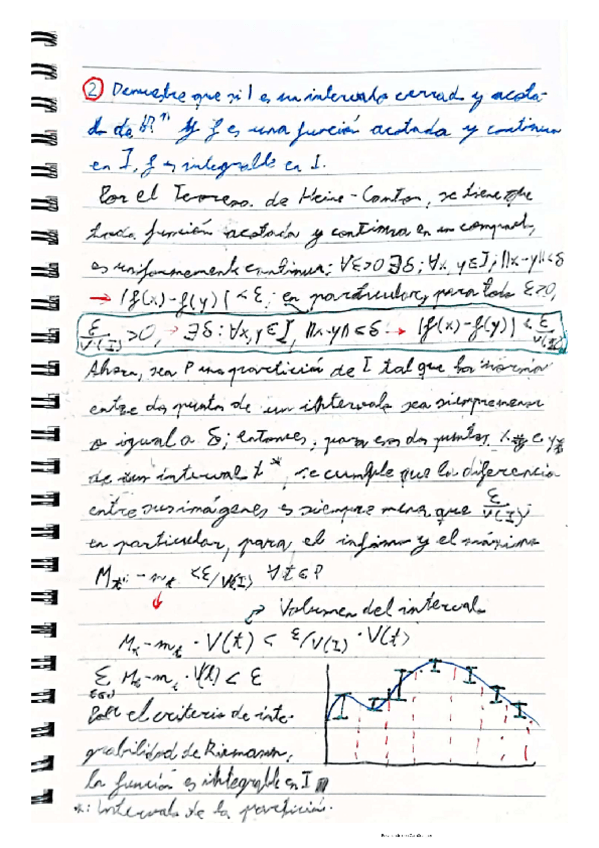 ② Demuestre que si I es un intervalo cerrado y acota-
do de ℝⁿ y f es una función acotada y continua
en I, f es integrable en I.
Por el Teorema de Heine-Cantor, se tiene que
toda función acotada y continua en un compacto,
es uniformemente continua; ∀ε>0 ∃δ: ∀x, y∈I, ||x-y||<δ
→ |f(x)-f(y)| < ε; en particular, para todo ε>0,
ε/V(I) >0, → ∃δ: ∀x,y∈I, ||x-y|| < δ → |f(x)-f(y)| < ε/V(I)
Ahora, sea P una partición de I tal que la norma
entre dos puntos de un intervalo sea siempre menor
o igual a δ; entonces, para esos dos puntos, x e y
de un intervalo t*, se cumple que la diferencia
entre sus imágenes es siempre menor que ε/V(I)
en particular, para el ínfimo y el máximo
Mₜ - mₜ < ε/V(I) ∀t∈P
Volumen del intervalo
Mₜ - mₜ · V(t) < ε/V(I) · V(t)
Σ Mₜ - mₜ · V(t) < ε
Por el criterio de inte-
grabilidad de Riemann,
la función es integrable en I
*: Intervalo de la partición.